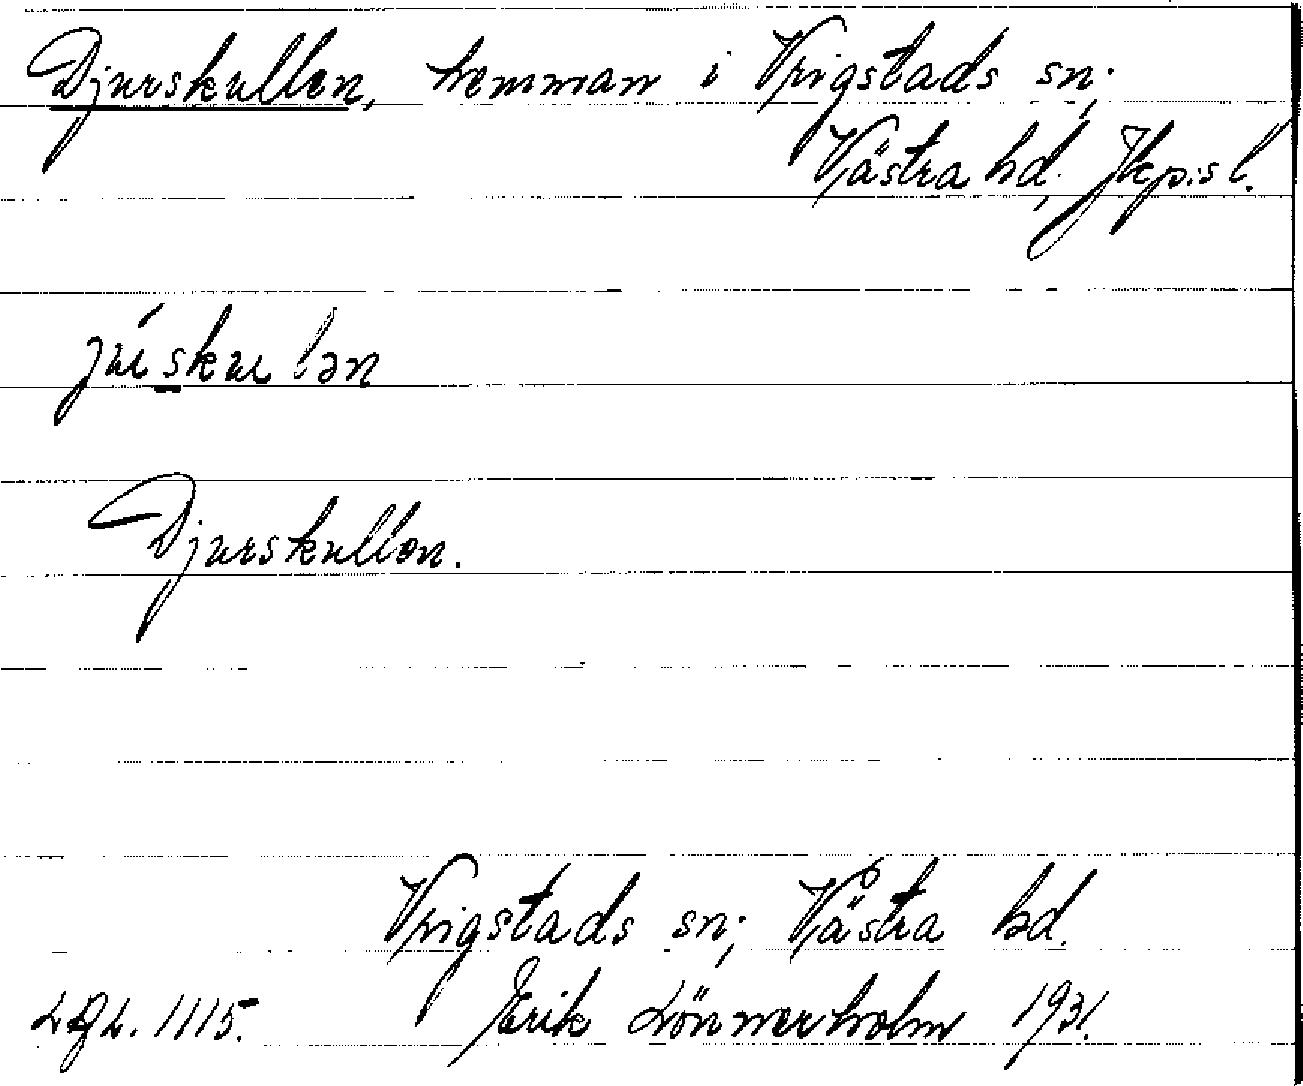 Djurskullen, hemman i Vrigstads sn;
Västra hd, Jkp:s l.
júskulən
Djurskullen.
Vrigstads sn; Västra hd.
1115. Erik Lönnerholm 1931.